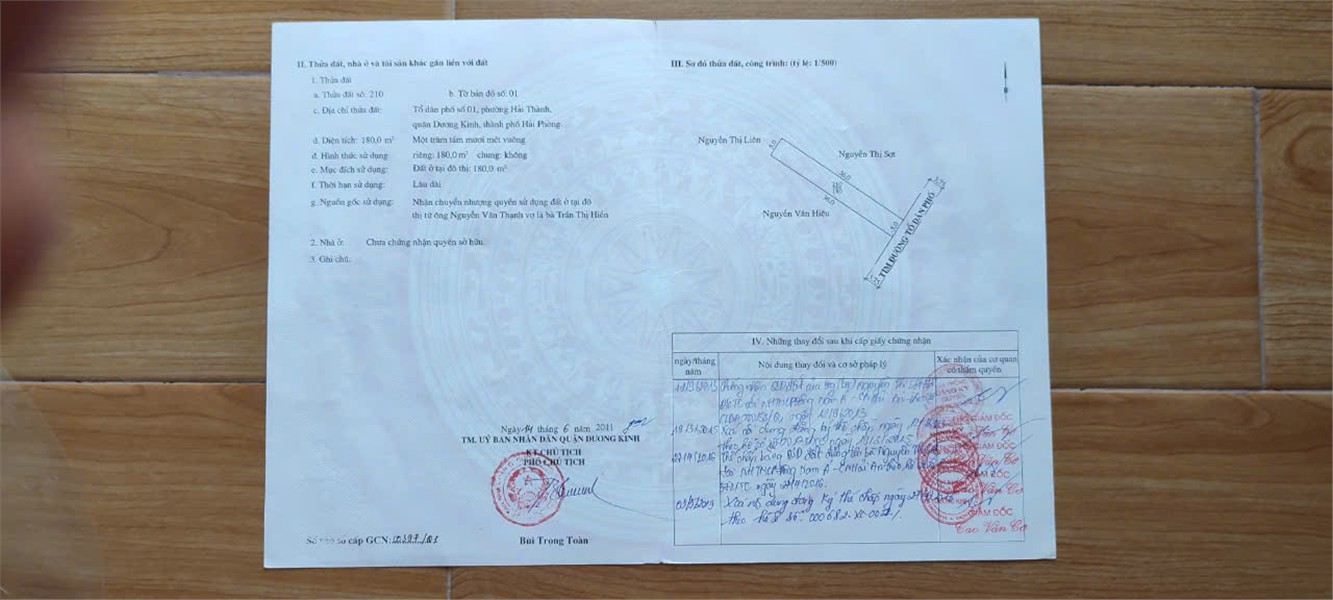 II. Thửa đất, nhà ở và tài sản khác gắn liền với đất
1. Thửa đất
a. Thửa đất số: 210 b. Tờ bản đồ số: 01
c. Địa chỉ thửa đất: Tổ dân phố số 01, phường Hải Thành,
quận Dương Kinh, thành phố Hải Phòng
d. Diện tích: 180,0 m² Một trăm tám mươi mét vuông
đ. Hình thức sử dụng riêng: 180,0 m² chung: không
e. Mục đích sử dụng: Đất ở tại đô thị: 180,0 m²
f. Thời hạn sử dụng: Lâu dài
g. Nguồn gốc sử dụng: Nhận chuyển nhượng quyền sử dụng đất ở tại đô
thị từ ông Nguyễn Văn Thanh vợ là bà Trần Thị Hiền
2. Nhà ở: Chưa chứng nhận quyền sở hữu.
3. Ghi chú:
Ngày 14 tháng 6 năm 2011
TM. UỶ BAN NHÂN DÂN QUẬN DƯƠNG KINH
KT CHỦ TỊCH
PHÓ CHỦ TỊCH
Số vào sổ cấp GCN:
Bùi Trọng Toàn
III. Sơ đồ thửa đất, công trình: (tỷ lệ: 1/500)
Nguyễn Thị Liên
5.0
Nguyễn Thị Sợt
36.0
210
180
36.0
Nguyễn Văn Hiệu
5.0
TIM ĐƯỜNG TỔ DÂN PHỐ
IV. Những thay đổi sau khi cấp giấy chứng nhận
ngày/tháng năm
Nội dung thay đổi và cơ sở pháp lý
Xác nhận của cơ quan có thẩm quyền
ngày 12/3/2013
Xoá nội dung đăng ký thế chấp ngày
theo hồ sơ số ngày
27/9/2016 Thế chấp bằng QSD đất
ngày 27/9/2016.
Xoá nội dung đăng ký thế chấp ngày
theo hồ sơ số 000682.XC.001/.
GIÁM ĐỐC
GIÁM ĐỐC
GIÁM ĐỐC
GIÁM ĐỐC
Cao Văn Cơ